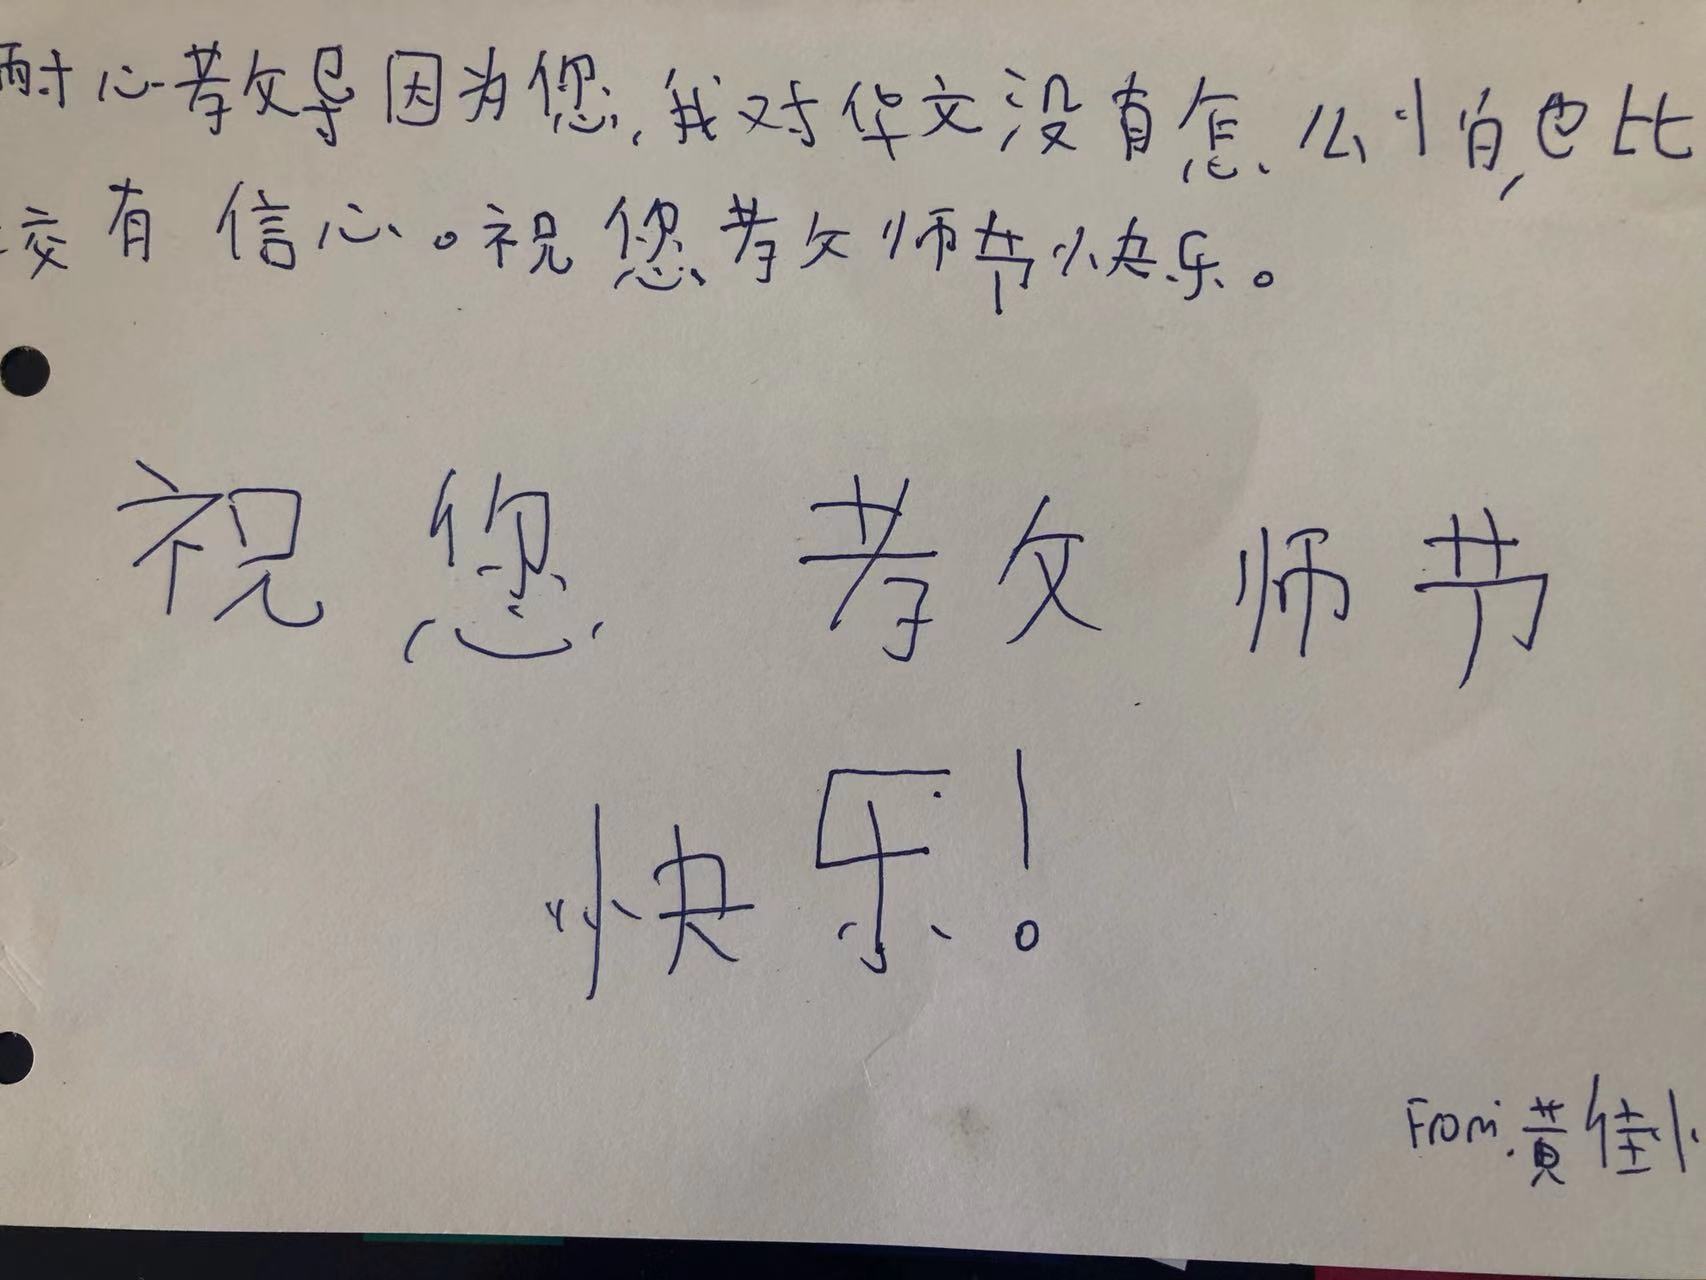 耐心教导因为您,我对华文没有怎么怕,也比
较有信心。祝您教师节快乐。
祝您 教师节
快乐!
From.黄佳